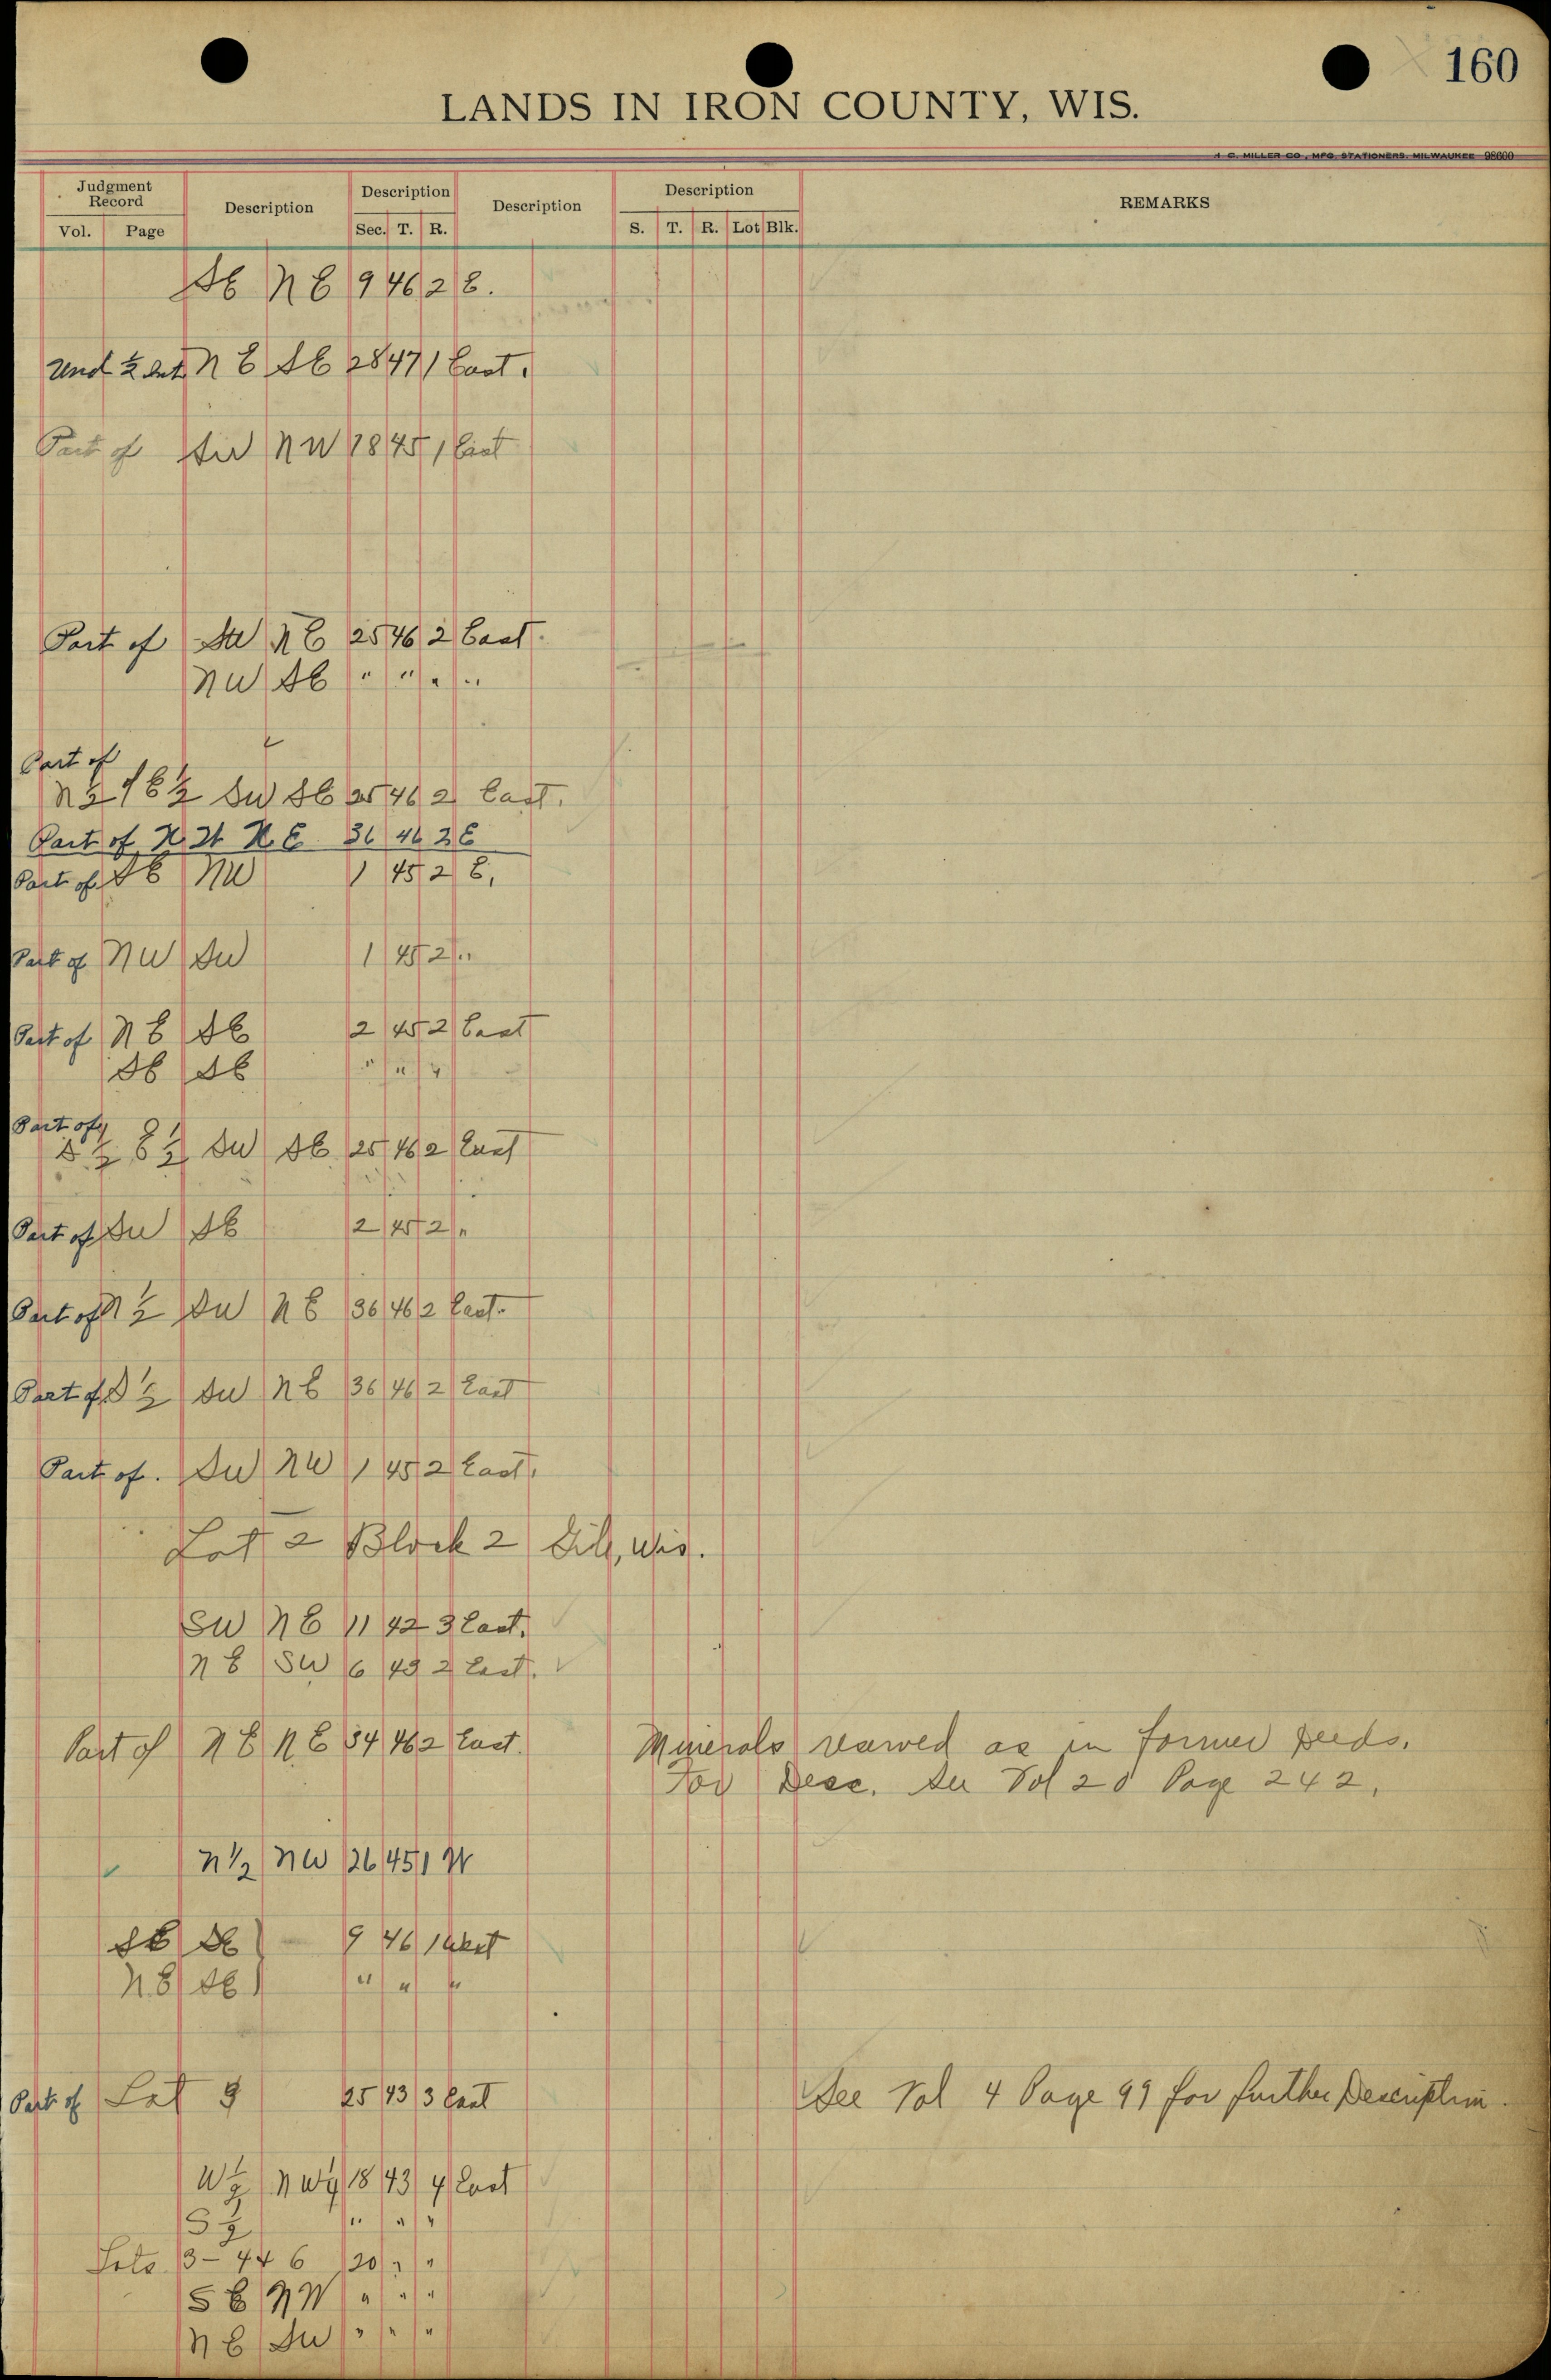 160
LANDS IN IRON COUNTY, WIS.
H. C. MILLER CO., MFG. STATIONERS, MILWAUKEE 98600
Judgment Record Description Description Description Description REMARKS
Vol. Page Sec. T. R. S. T. R. Lot Blk.
SE NE 9 46 2 E.
Und ½ Int. NE SE 28 47 1 East.
Part of SW NW 18 45 1 East
Part of SW NE 25 46 2 East.
NW SE " " " "
Part of
N½ of E½ SW SE 25 46 2 East.
Part of N W N. E. 36 46 2 E
Part of SE NW 1 45 2 E.
Part of NW SW 1 45 2 "
Part of NE SE 2 45 2 East
SE SE " " "
Part of
S½ E½ SW SE 25 46 2 East
Part of SW SE 2 45 2 "
Part of N½ SW NE 36 46 2 East.
Part of S½ SW NE 36 46 2 East
Part of. SW NW 1 45 2 East.
Lot 2 Block 2 Gile, Wis.
SW NE 11 42 3 East.
NE SW 6 43 2 East.
Part of NE NE 34 46 2 East. Minerals reserved as in former deeds.
For Desc. See Vol 20 Page 242.
N½ NW 26 45 1 W
SE SE ) 9 46 1 West
NE SE ) " " "
Part of Lot 9 25 43 3 East See Vol 4 Page 99 for further Description.
W½ NW¼ 18 43 4 East
S½ " " "
Lots 3 - 4 + 6 20 " "
SE NW " " "
NE SW " " "